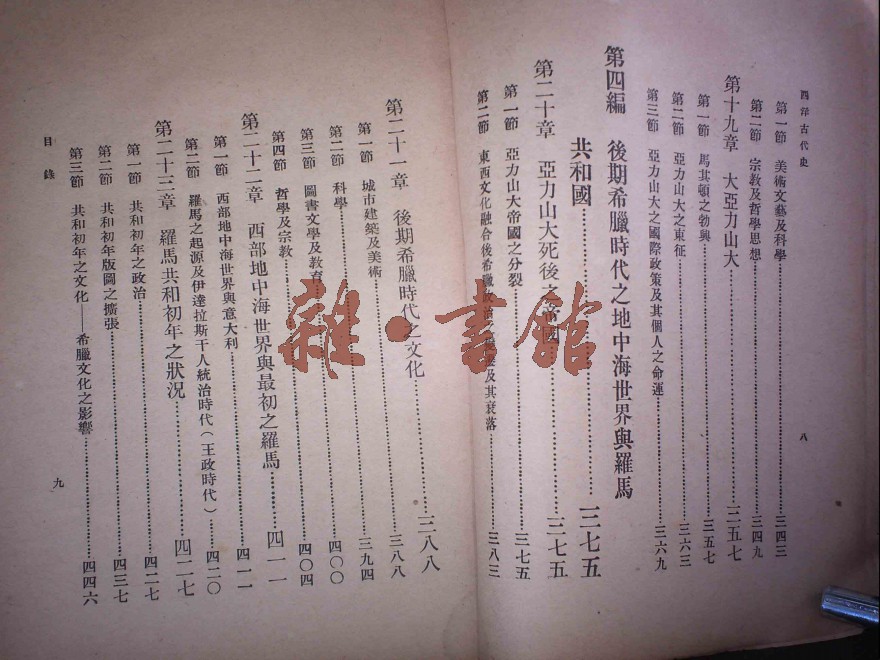 西洋古代史
八
第一節　美術文藝及科學……三四三
第二節　宗教及哲學思想……三四九
第十九章　大亞力山大……三五七
第一節　馬其頓之勃興……三五七
第二節　亞力山大之東征……三六三
第三節　亞力山大之國際政策及其個人之命運……三六九
第四編　後期希臘時代之地中海世界與羅馬
共和國……三七五
第二十章　亞力山大死後之帝國……三七五
第一節　亞力山大帝國之分裂……三七五
第二節　東西文化融合後希臘政治之及其衰落……三八三
第二十一章　後期希臘時代之文化……三八八
第一節　城市建築及美術……三八八
第二節　科學……三九四
第三節　圖書文學及教育……四〇〇
第四節　哲學及宗教……四〇四
第二十二章　西部地中海世界與最初之羅馬……四一一
第一節　西部地中海世界與意大利……四一一
第二節　羅馬之起源及伊達拉斯干人統治時代（王政時代）……四二〇
第二十三章　羅馬共和初年之狀況……四二七
第一節　共和初年之政治……四二七
第二節　共和初年版圖之擴張……四三七
第三節　共和初年之文化——希臘文化之影響……四四六
目錄
九
雜·書館